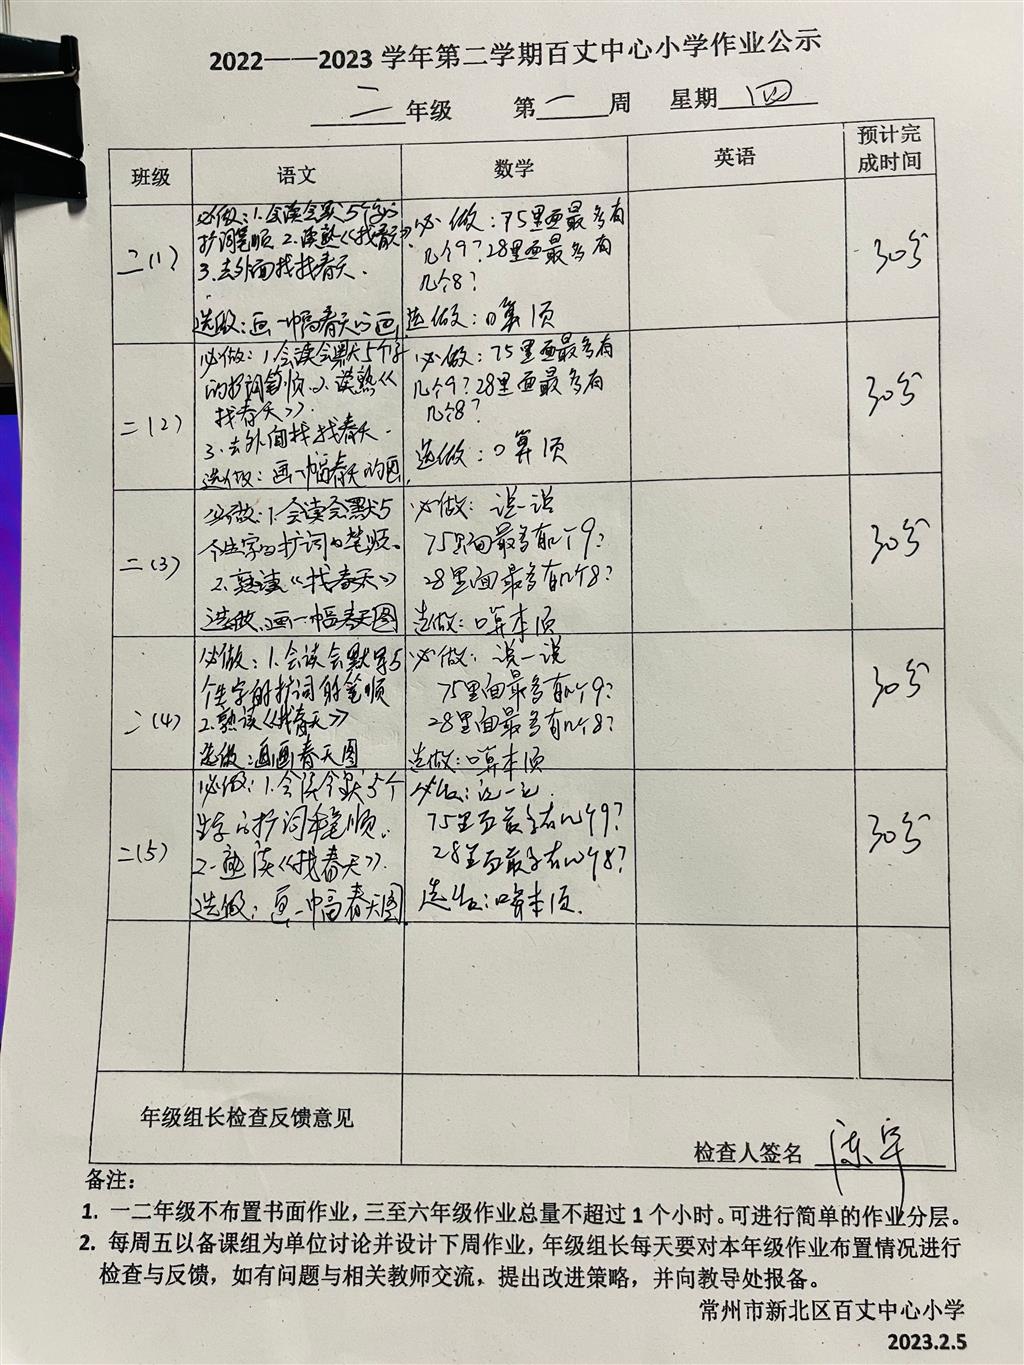 2022——2023 学年第二学期百丈中心小学作业公示
二年级 第一周 星期四
班级 语文 数学 英语 预计完成时间
二(1)
必做:1.会读会默5个字的
扩词笔顺 2.读熟《找春天》.
3.去外面找找春天.
选做:画一幅春天的画
必做:75里面最多有
几个9?28里面最多有
几个8?
选做:口算1页
30分
二(2)
必做:1.会读会默5个字
的扩词笔顺.2.读熟《
找春天》.
3.去外面找找春天.
选做:画一幅春天的画.
必做:75里面最多有
几个9?28里面最多有
几个8?
选做:口算1页
30分
二(3)
必做:1.会读会默5
个生字的扩词的笔顺.
2.熟读《找春天》
选做:画一幅春天图
必做:说一说
75里面最多有几个9?
28里面最多有几个8?
选做:口算本1页
30分
二(4)
必做:1.会读会默写5
个生字的扩词的笔顺
2.熟读《找春天》
选做:画画春天图
必做:说一说
75里面最多有几个9?
28里面最多有几个8?
选做:口算本1页
30分
二(5)
必做:1.会读会默5个
生字的扩词和笔顺.
2.熟读《找春天》.
选做:画一幅春天图
必做:说一说.
75里面最多有几个9?
28里面最多有几个8?
选做:口算本1页.
30分
年级组长检查反馈意见
检查人签名
备注:
1. 一二年级不布置书面作业,三至六年级作业总量不超过1个小时。可进行简单的作业分层。
2. 每周五以备课组为单位讨论并设计下周作业,年级组长每天要对本年级作业布置情况进行
检查与反馈,如有问题与相关教师交流、提出改进策略,并向教导处报备。
常州市新北区百丈中心小学
2023.2.5